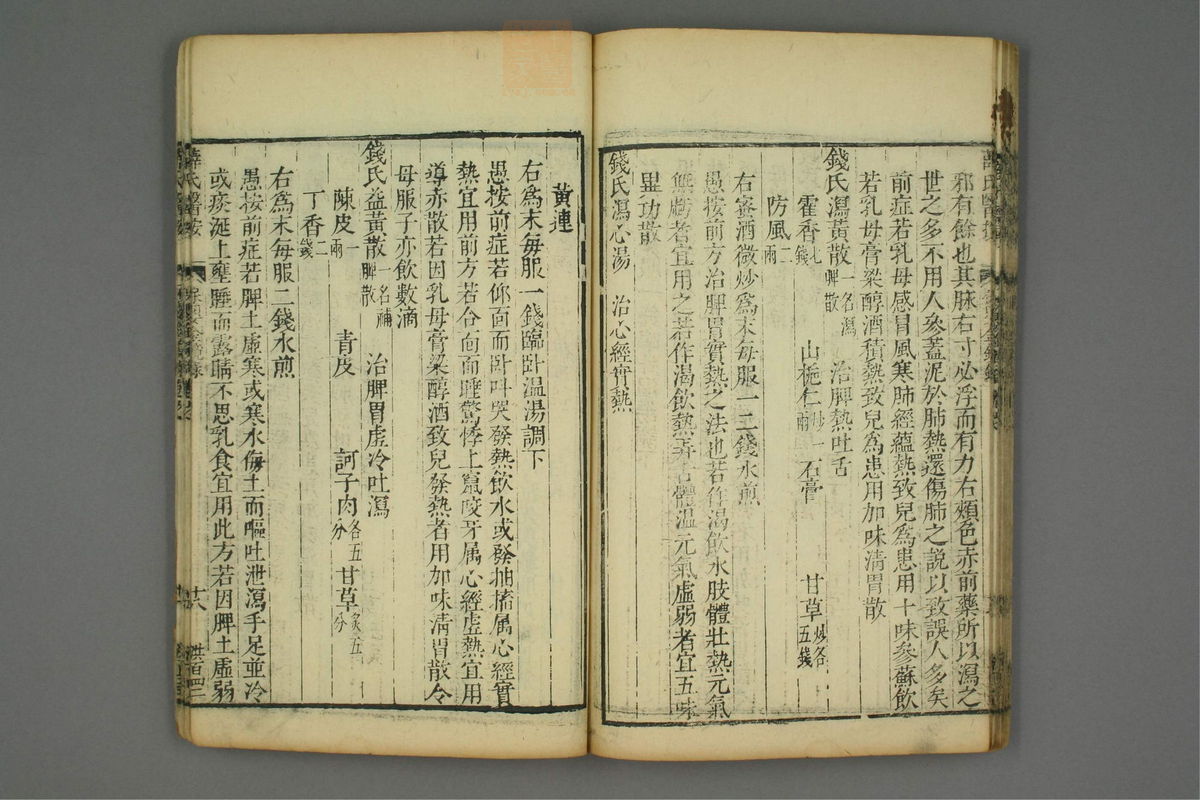 邪有餘也其脉右寸必浮而有力右頰色赤前藥所以瀉之
世之多不用人參蓋泥於肺熱還傷肺之説以致誤人多矣
前症若乳母感冒風寒肺經蘊熱致兒爲患用十味參蘇飲
若乳母膏粱醇酒積熱致兒爲患用加味清胃散
錢氏瀉黃散一名瀉脾散 治脾熱吐舌
藿香七錢 山梔仁炒一兩 石膏 甘草炒各五錢
防風二兩
右蜜酒微炒爲末每服一二錢水煎
愚按前方治脾胃實熱之法也若作渴飲水肢體壯熱元氣
無虧者宜用之若作渴飲熱弄舌體溫元氣虛弱者宜五味
異功散
錢氏瀉心湯 治心經實熱
黃連
右爲末每服一錢臨卧温湯調下
愚按前症若仰面而卧呌哭發熱飲水或發抽搐属心經實
熱宜用前方若合面而睡驚悸上竄咬牙属心經虛熱宜用
導赤散若因乳母膏粱醇酒致兒發熱者用加味清胃散令
母服子亦飲數滴
錢氏益黃散一名補脾散 治脾胃虛冷吐瀉
陳皮一兩 青皮 訶子肉各五分 甘草炙五分
丁香二錢
右爲末每服二錢水煎
愚按前症若脾土虛寒或寒水侮土而嘔吐泄瀉手足並冷
或痰涎上壅睡而露睛不思乳食宜用此方若因脾土虛弱
薛氏醫按